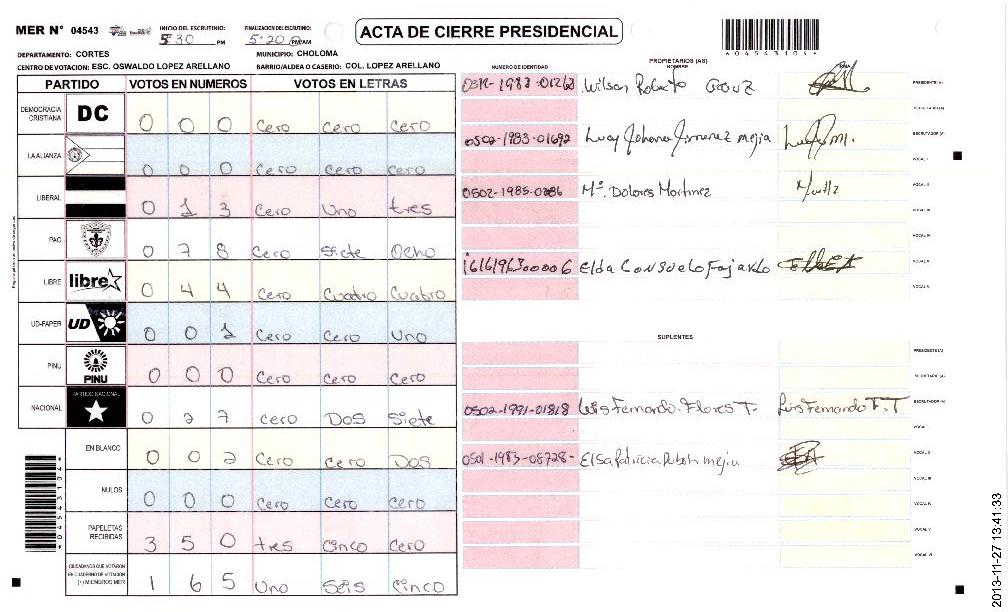 MER N° 04543
INICIO DEL ESCRUTINIO:
5:30 PM
FINALIZACION DEL ESCRUTINIO:
5:20 PM/AM
ACTA DE CIERRE PRESIDENCIAL
DEPARTAMENTO: CORTES
MUNICIPIO: CHOLOMA
CENTRO DE VOTACION: ESC. OSWALDO LOPEZ ARELLANO
BARRIO/ALDEA O CASERIO: COL. LOPEZ ARELLANO
PARTIDO VOTOS EN NUMEROS VOTOS EN LETRAS
DEMOCRACIA CRISTIANA DC 0 0 0 Cero Cero Cero
LA ALIANZA 0 0 0 Cero Cero Cero
LIBERAL 0 1 3 Cero Uno tres
PAC 0 7 8 Cero Siete Ocho
LIBRE libre 0 4 4 Cero Cuatro Cuatro
UD-FAPER UD 0 0 1 Cero Cero Uno
PINU PINU 0 0 0 Cero Cero Cero
NACIONAL PARTIDO NACIONAL 0 2 7 cero Dos Siete
EN BLANCO 0 0 2 Cero Cero Dos
NULOS 0 0 0 Cero Cero Cero
PAPELETAS RECIBIDAS 3 5 0 tres Cinco Cero
CIUDADANOS QUE VOTARON EN CUADERNO DE VOTACION (+) MIEMBROS MER 1 6 5 Uno Seis Cinco
PROPIETARIOS (AS)
NUMERO DE IDENTIDAD NOMBRE FIRMA
Wilson Roberto PRESIDENTE (A)
SECRETARIO (A)
0502-1983-01692 Lucy Johana Jimenez mejia ESCRUTADOR (A)
VOCAL I
0502-1985-0286 Mª Dolores Martinez VOCAL II
VOCAL III
VOCAL IV
1616196300006 Elda Consuelo Fajardo VOCAL V
VOCAL VI
SUPLENTES
PRESIDENTE (A)
SECRETARIO (A)
0502-1991-01818 Luis Fernando Flores T. Luis Fernando F. T ESCRUTADOR (A)
VOCAL I
0501-1983-08728- Elsa Patricia mejia VOCAL II
VOCAL III
VOCAL IV
VOCAL V
VOCAL VI
2013-11-27 13:41:33